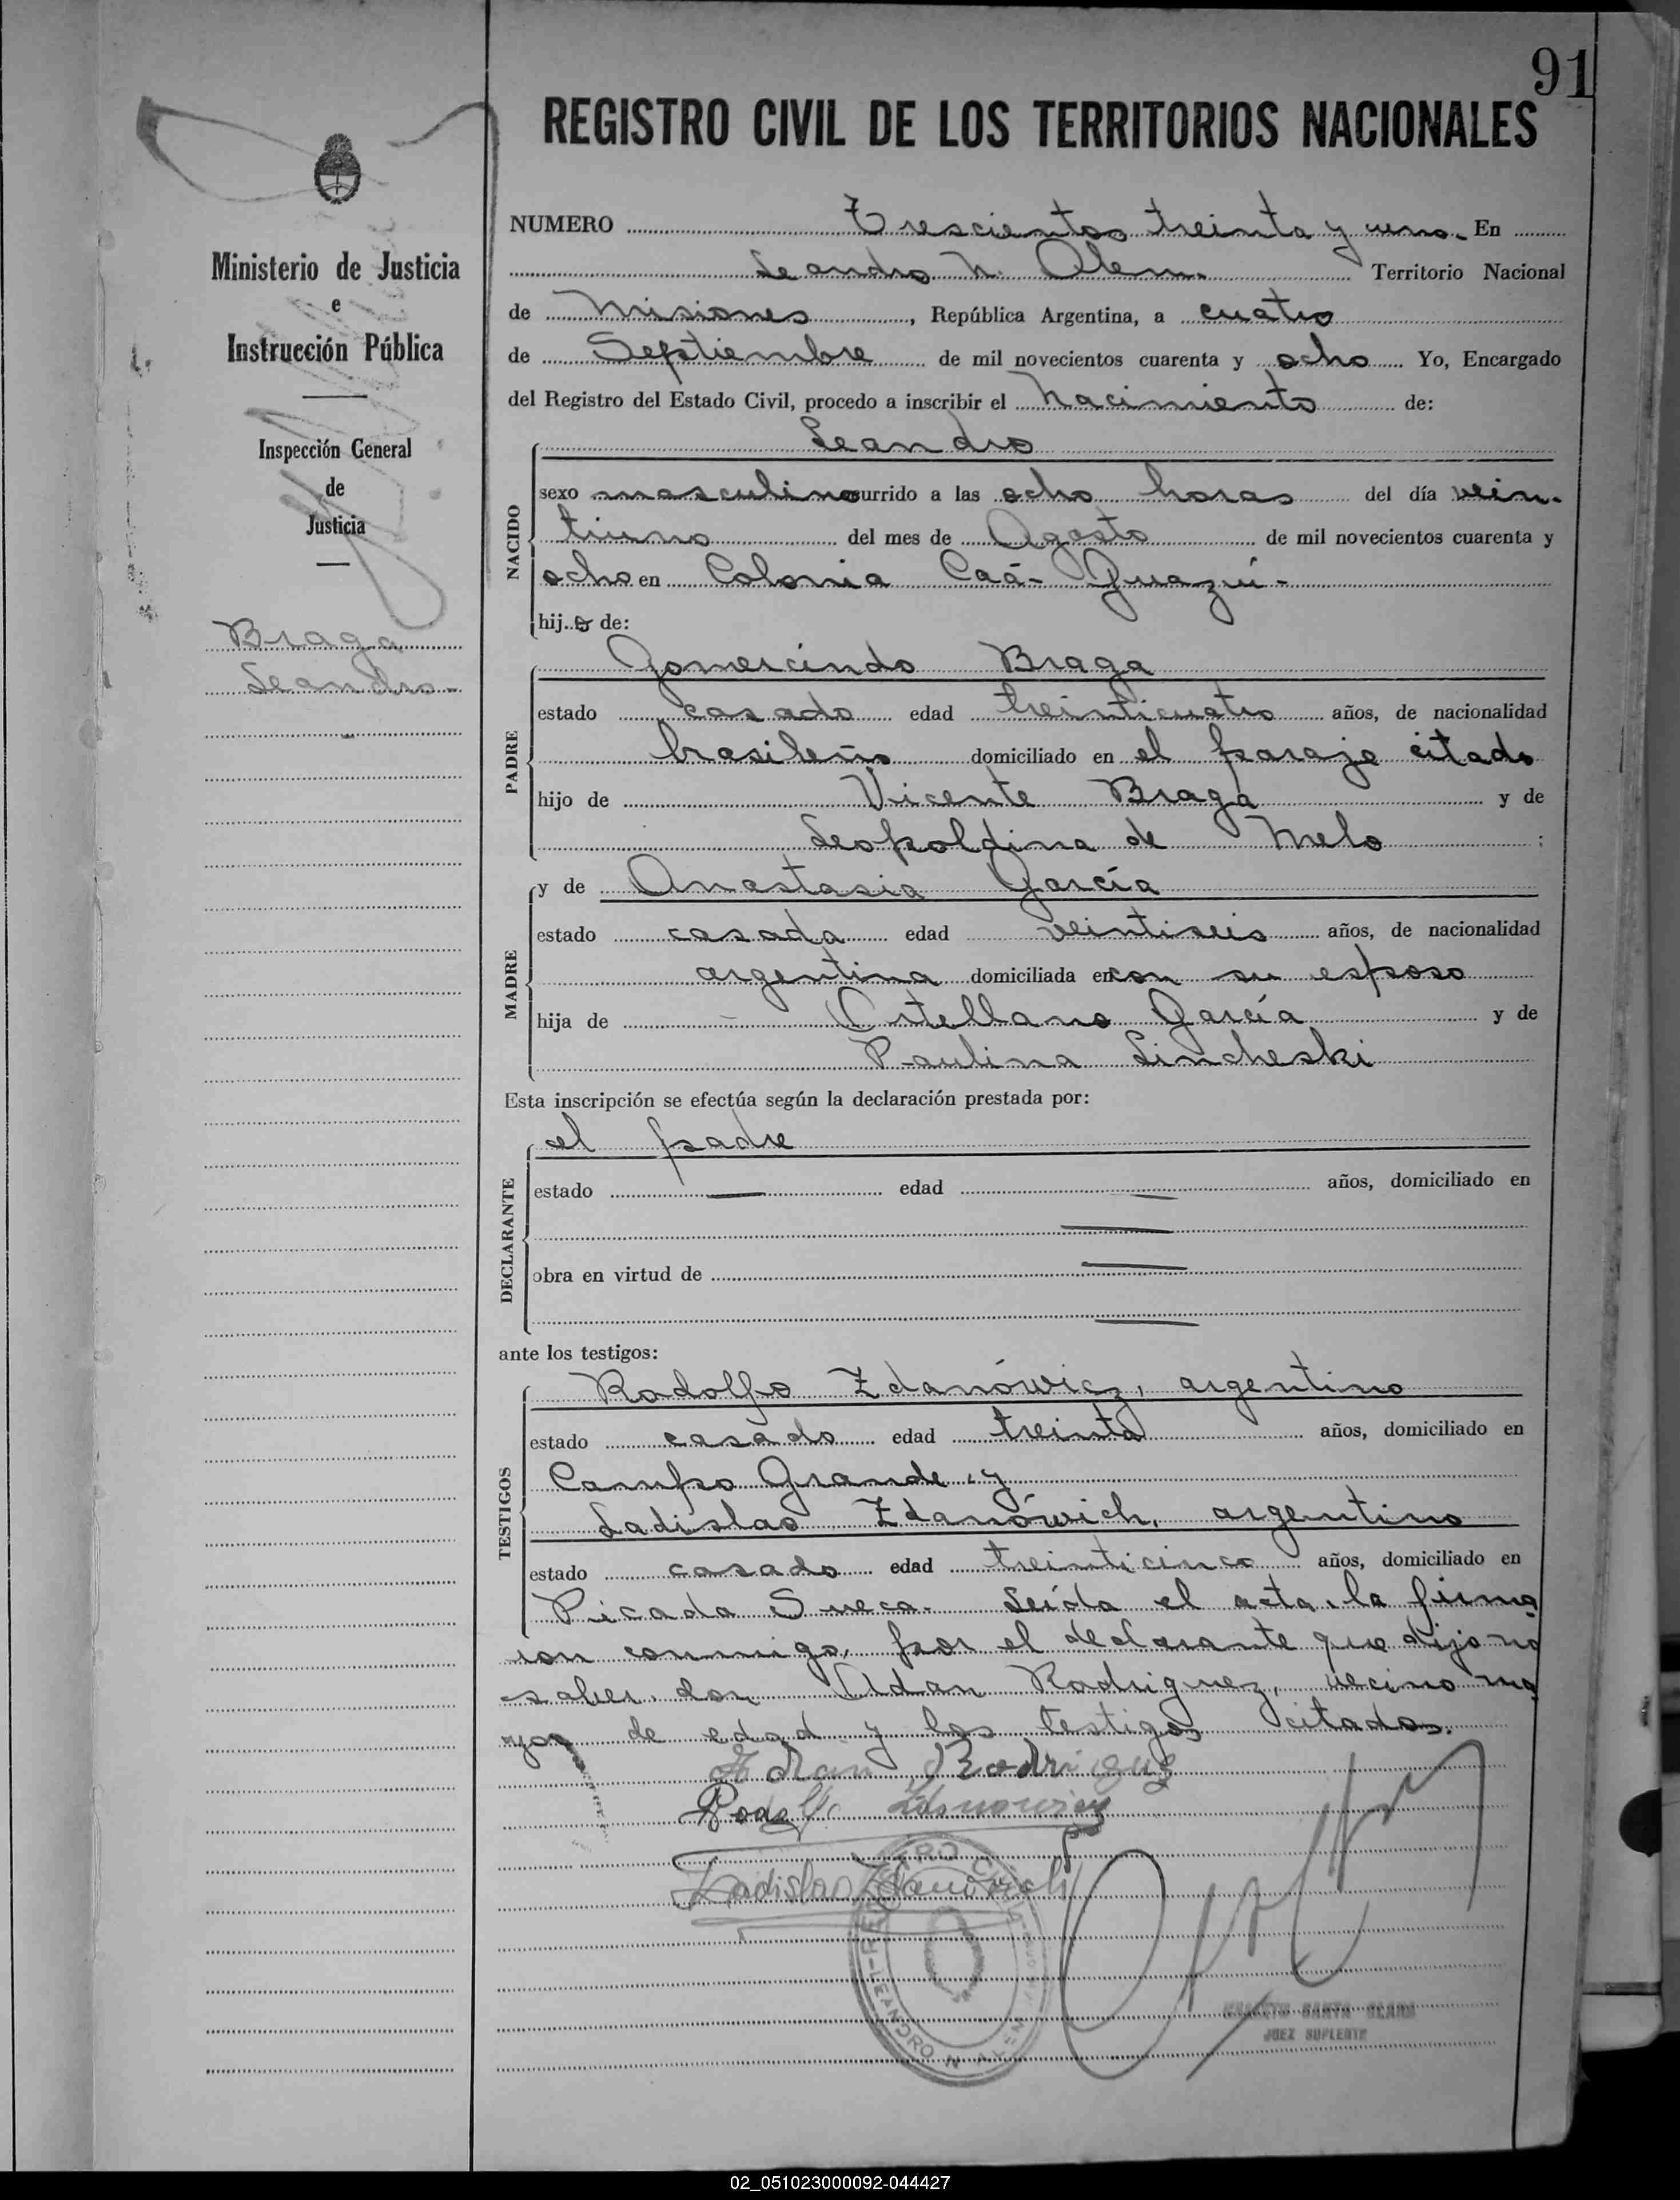 91
REGISTRO CIVIL DE LOS TERRITORIOS NACIONALES
Ministerio de Justicia
e
Instrucción Pública
Inspección General
de
Justicia
Braga
Leandro-
NUMERO Trescientos treinta y uno. En
Leandro N. Alem. Territorio Nacional
de Misiones, República Argentina, a cuatro
de Septiembre de mil novecientos cuarenta y ocho Yo, Encargado
del Registro del Estado Civil, procedo a inscribir el Nacimiento de:
NACIDO
Leandro
sexo masculino ocurrido a las ocho horas del día vein-
tiuno del mes de Agosto de mil novecientos cuarenta y
ocho en Colonia Caá-Guazú-
hijo de:
PADRE
Gomercindo Braga
estado casado edad treinticuatro años, de nacionalidad
brasileño domiciliado en el paraje citado
hijo de Vicente Braga y de
Leopoldina de Melo ;
MADRE
y de Anastasia García
estado casada edad veintiseis años, de nacionalidad
argentina domiciliada en con su esposo
hija de Ortellano García y de
Paulina Lincheski
Esta inscripción se efectúa según la declaración prestada por:
DECLARANTE
el padre
estado — edad — años, domiciliado en
—
obra en virtud de —
—
ante los testigos:
TESTIGOS
Rodolfo Zdanówicz, argentino
estado casado edad treinta años, domiciliado en
Campo Grande, y
Ladislao Zdanówich, argentino
estado casado edad treinticinco años, domiciliado en
Picada Sueca. Leída el acta, la firma
ron conmigo, por el declarante que dijo no
saber, don Adan Rodriguez, vecino ma
yor de edad y los testigos citados.
Adan Rodriguez
Rodolfo Zdanowicz
Ladislao Zdanowich
REGISTRO CIVIL
LEANDRO N. ALEM
SANTA CLARA
JUEZ SUPLENTE
02_051023000092-044427